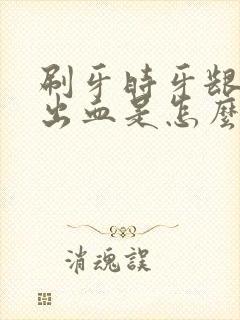 刷牙时牙龈
出血是怎麼
消魂誤